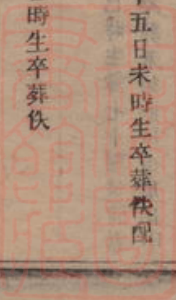 五日未時生卒葬佚配
時生卒葬佚